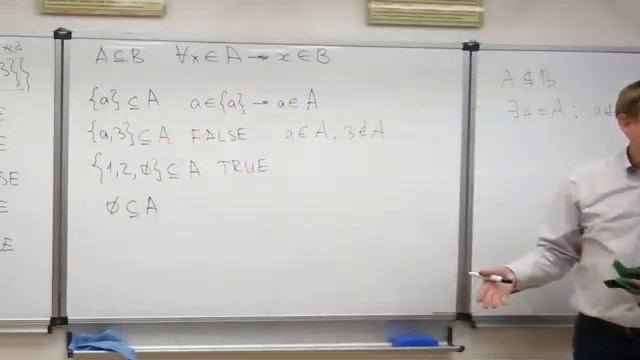 x3
3}}
SE
E
E
A⊆B ∀x∈A → x∈B
{a}⊆A a∈{a} → a∈A
{a,3}⊆A FALSE a∈A, 3∉A
{1,2,∅}⊆A TRUE
∅⊆A
A⊈B
∃a∈A: